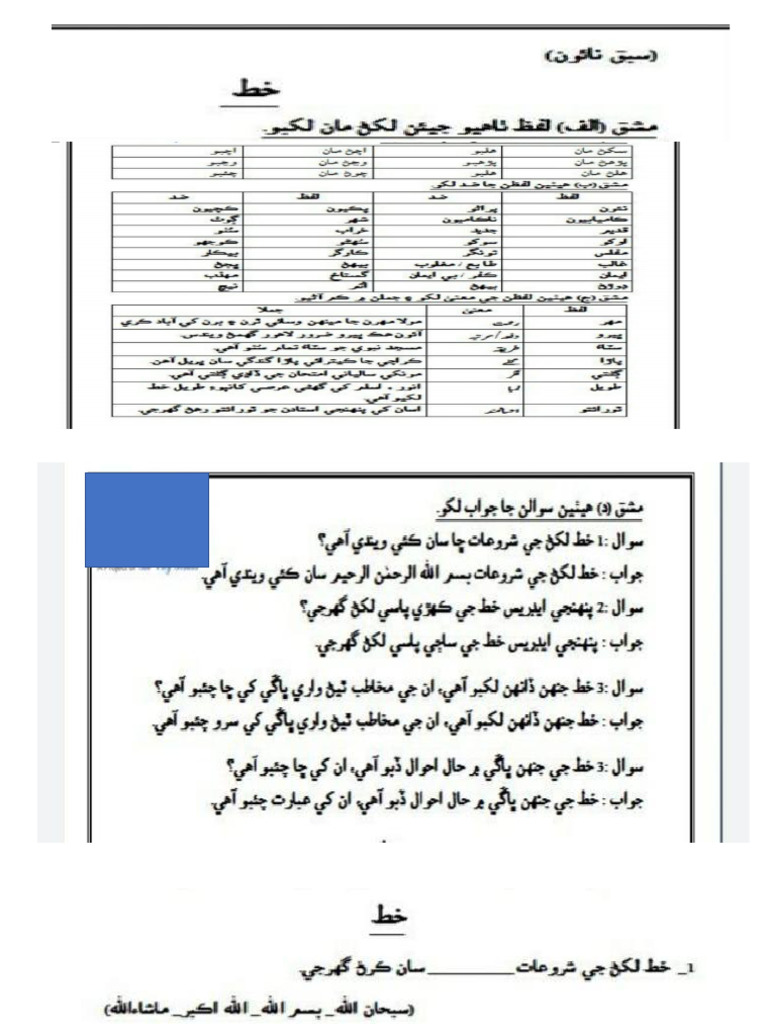 (سبق نائون)
خط
مشق (الف) لفظ ٺاهيو جيئن لکڻ مان لکيو.
سکڻ مان هليو اچڻ مان اچيو
پڙهڻ مان پڙهيو وڃڻ مان وڃيو
هلڻ مان هليو چوڻ مان چئبو
مشق (ب) هيٺين لفظن جا ضد لکو.
لفظ ضد لفظ ضد
نئون پراڻو پڪيون ڪچيون
ڪاميابيون ناڪاميون شهر ڳوٺ
قديم جديد خراب سٺو
اوکو سوکو سهڻو ڪوجهو
مفلس تونگر ڪارگر بيڪار
غالب طابع / مغلوب بيهڻ ڀڄڻ
ايمان ڪفر / بي ايمان گستاخ مهذب
ڊوڙڻ بيهڻ اڻر نيچ
مشق (ج) هيٺين لفظن جي معنيٰ لکو ۽ جملن ۾ ڪم آڻيو.
لفظ معنيٰ جملا
مهر رحمت مولا مهرن جا مينهن وسائي ٿرن ۽ برن کي آباد ڪري
ڀيرو دفعو / مرتبہ آئون هڪ ڀيرو ضرور لاهور گهمڻ ويندس.
سنئہ طريقہ مسجد نبوي جو سنئہ تمام سٺو آهي.
پاڙا محلے ڪراچي جا ڪيترائي پاڙا گندگي سان ڀريل آهن.
ڳڻتي فکر مونکي سالياني امتحان جي ڏاڍي ڳڻتي آهي.
طويل لمبا انور، اسلم کي گهڻي عرصي کانپوءِ طويل خط
لکيو آهي.
ٿورائتو اسان کي پنهنجي استادن جو ٿورائتو رهڻ گهرجي.
مشق (د) هيٺين سوالن جا جواب لکو.
سوال :1 خط لکڻ جي شروعات ڇا سان ڪئي ويندي آهي؟
جواب : خط لکڻ جي شروعات بسم الله الرحمٰن الرحيم سان ڪئي ويندي آهي.
سوال :2 پنهنجي ايڊريس خط جي ڪهڙي پاسي لکڻ گهرجي؟
جواب : پنهنجي ايڊريس خط جي ساڄي پاسي لکڻ گهرجي.
سوال :3 خط جنهن ڏانهن لکبو آهي، ان جي مخاطب ٿيڻ واري ڀاڱي کي ڇا چئبو آهي؟
جواب : خط جنهن ڏانهن لکبو آهي، ان جي مخاطب ٿيڻ واري ڀاڱي کي سرو چئبو آهي.
سوال :3 خط جي جنهن ڀاڱي ۾ حال احوال ڏبو آهي، ان کي ڇا چئبو آهي؟
جواب : خط جي جنهن ڀاڱي ۾ حال احوال ڏبو آهي، ان کي عبارت چئبو آهي.
خط
1_ خط لکڻ جي شروعات__________ سان ڪرڻ گهرجي.
(سبحان الله_ بسم الله_ الله اڪبر_ ماشاءالله)